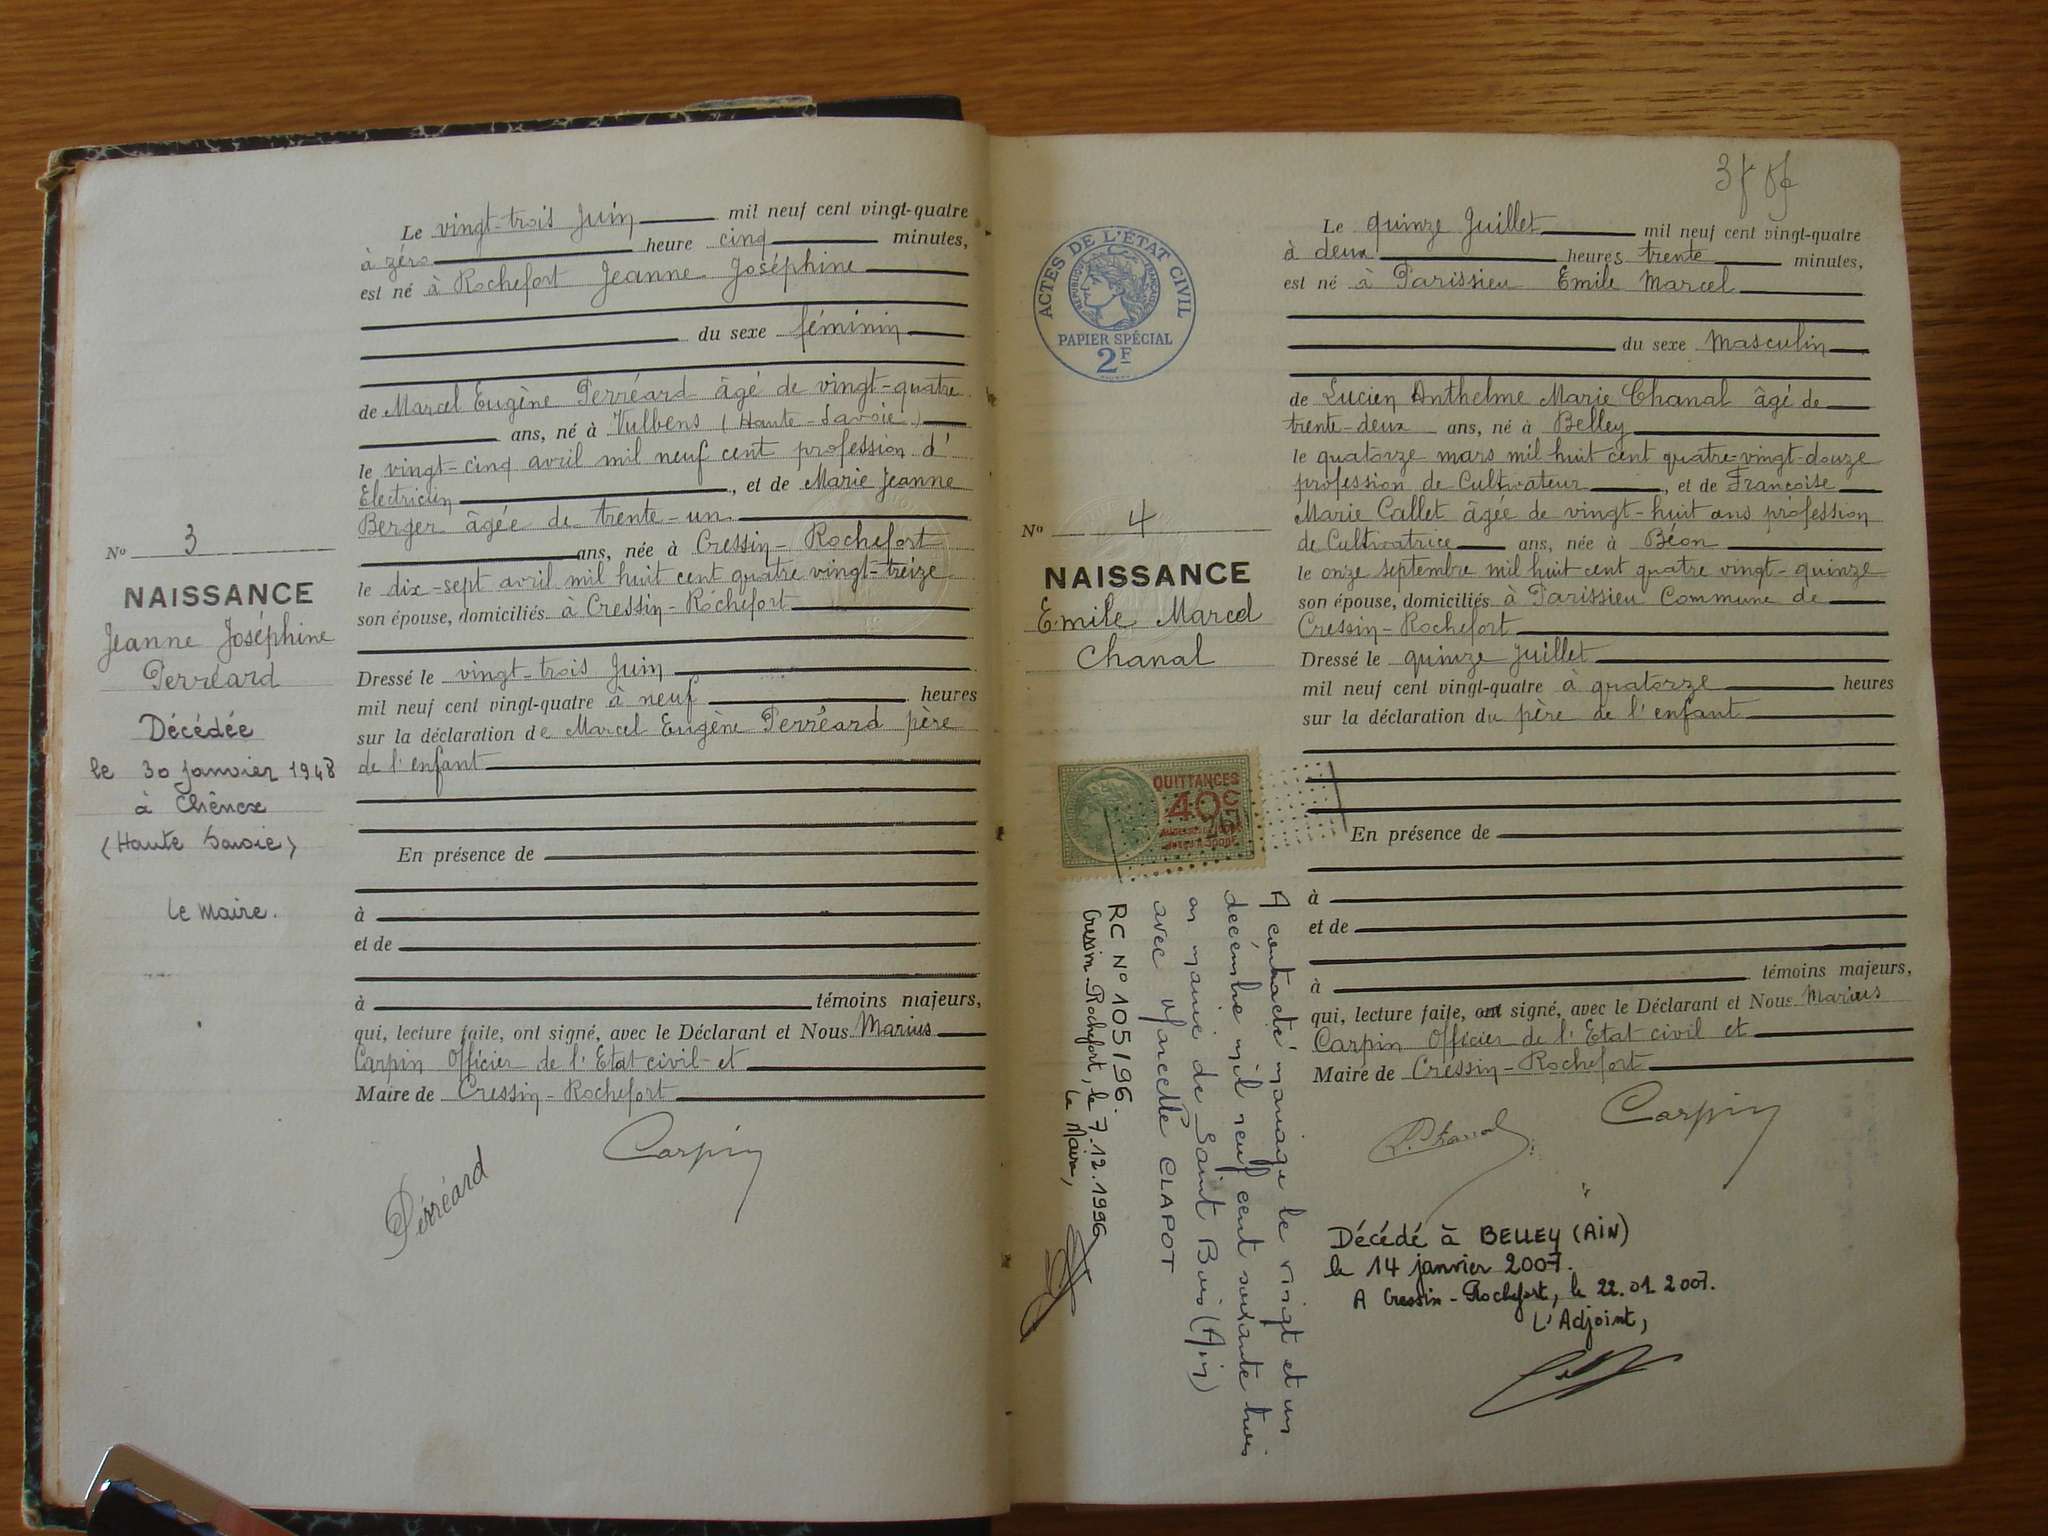 Le vingt-trois Juin mil neuf cent vingt-quatre
à zéro heure cinq minutes,
est né à Rochefort Jeanne Joséphine
du sexe féminin
de Marcel Eugène Perréard âgé de vingt-quatre
ans, né à Vulbens (Haute-Savoie)
le vingt-cinq avril mil neuf cent profession d'
Electricien, et de Marie Jeanne
Berger âgée de trente-un
ans, née à Cressin-Rochefort
le dix-sept avril mil huit cent quatre vingt-treize
son épouse, domiciliés à Cressin-Rochefort
Dressé le vingt-trois Juin
mil neuf cent vingt-quatre à neuf heures
sur la déclaration de Marcel Eugène Perréard père
de l'enfant
En présence de
à
et de
à témoins majeurs,
qui, lecture faite, ont signé, avec le Déclarant et Nous Marius
Carpin Officier de l'Etat civil et
Maire de Cressin-Rochefort
Perréard
Carpin
No 3
NAISSANCE
Jeanne Joséphine
Perréard
Décédée
le 30 janvier 1948
à Chênex
(Haute Savoie)
le Maire.
ACTES DE L'ÉTAT CIVIL
RÉPUBLIQUE FRANÇAISE
PAPIER SPÉCIAL
2F
No 4
NAISSANCE
Emile Marcel
Chanal
QUITTANCES
40c
A contracté mariage le vingt et un
décembre mil neuf cent soixante trois
en mairie de Saint Bois (Ain)
avec Marcelle CLAPOT
RC No 105/96
Cressin-Rochefort, le 7.12.1996
Le Maire,
Le quinze Juillet mil neuf cent vingt-quatre
à deux heures trente minutes,
est né à Parissieu Emile Marcel
du sexe Masculin
de Lucien Anthelme Marie Chanal âgé de
trente-deux ans, né à Belley
le quatorze mars mil huit cent quatre-vingt-douze
profession de Cultivateur, et de Françoise
Marie Callet âgée de vingt-huit ans profession
de Cultivatrice ans, née à Béon
le onze septembre mil huit cent quatre vingt-quinze
son épouse, domiciliés à Parissieu Commune de
Cressin-Rochefort
Dressé le quinze Juillet
mil neuf cent vingt-quatre à quatorze heures
sur la déclaration du père de l'enfant
En présence de
à
et de
à témoins majeurs,
qui, lecture faite, ont signé, avec le Déclarant et Nous Marius
Carpin Officier de l'Etat civil et
Maire de Cressin-Rochefort
Chanal
Carpin
Décédé à BELLEY (AIN)
le 14 janvier 2007.
A Cressin-Rochefort, le 22.01.2007.
L'Adjoint,